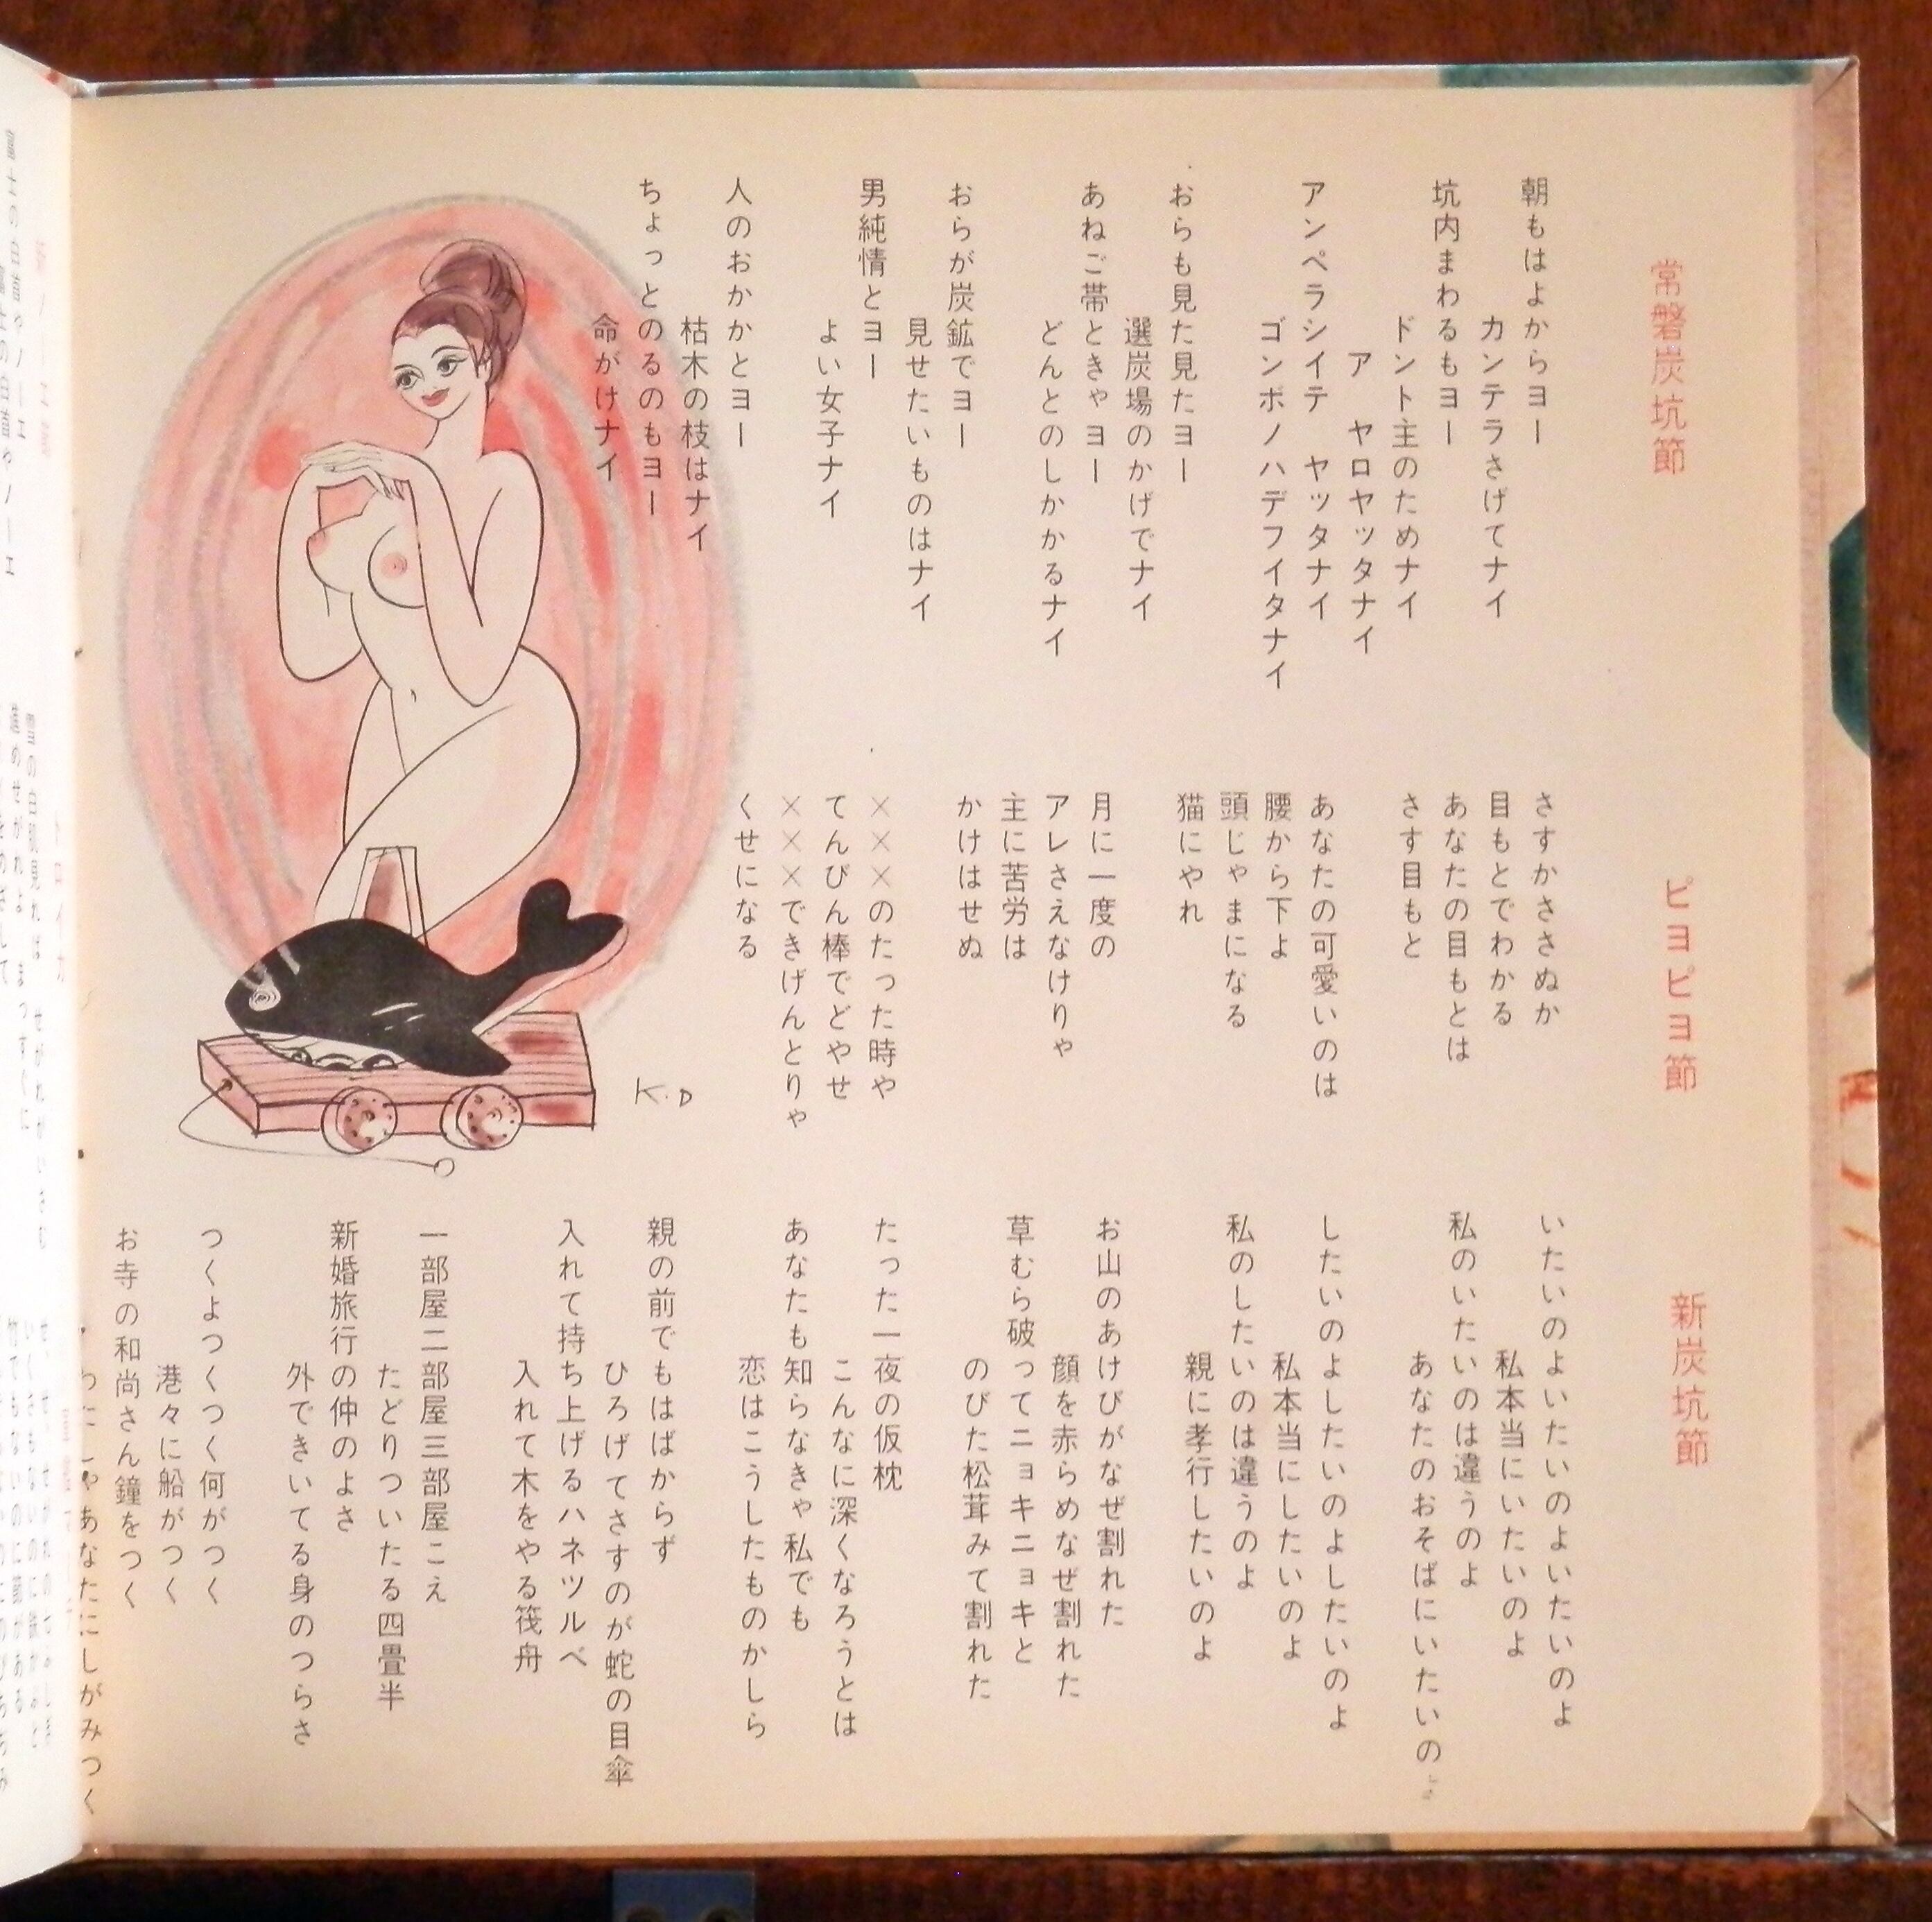 常磐炭坑節
朝もはよからヨー
カンテラさげてナイ
坑内まわるもヨー
ドント主のためナイ
ア　ヤロヤッタナイ
アンペラシイテ　ヤッタナイ
ゴンボノハデフイタナイ
おらも見た見たヨー
選炭場のかげでナイ
あねご帯ときゃヨー
どんとのしかかるナイ
おらが炭鉱でヨー
見せたいものはナイ
男純情とヨー
よい女子ナイ
人のおかかとヨー
枯木の枝はナイ
ちょっとのるのもヨー
命がけナイ
ピヨピヨ節
さすかささぬか
目もとでわかる
あなたの目もとは
さす目もと
あなたの可愛いのは
腰から下よ
頭じゃまになる
猫にやれ
月に一度の
アレさえなけりゃ
主に苦労は
かけはせぬ
×××のたった時や
てんびん棒でどやせ
×××できげんとりゃ
くせになる
新炭坑節
いたいのよいたいのよいたいのよ
私本当にいたいのよ
私のいたいのは違うのよ
あなたのおそばにいたいのよ
したいのよしたいのよしたいのよ
私本当にしたいのよ
私のしたいのは違うのよ
親に孝行したいのよ
お山のあけびがなぜ割れた
顔を赤らめなぜ割れた
草むら破ってニョキニョキと
のびた松茸みて割れた
たった一夜の仮枕
こんなに深くなろうとは
あなたも知らなきゃ私でも
恋はこうしたものかしら
親の前でもはばからず
ひろげてさすのが蛇の目傘
入れて持ち上げるハネツルベ
入れて木をやる筏舟
一部屋二部屋三部屋こえ
たどりついたる四畳半
新婚旅行の仲のよさ
外できいてる身のつらさ
つくよつくつく何がつく
港々に船がつく
お寺の和尚さん鐘をつく
わたしゃあなたにしがみつく
K.D